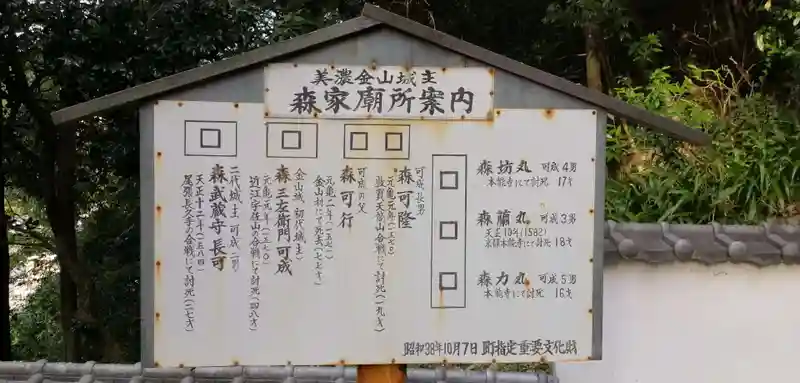 美濃金山城主
森家廟所案内
森坊丸 可成4男
本能寺にて討死 17才
森蘭丸 可成3男
天正10年(1582)
京都本能寺にて討死 18才
森力丸 可成5男
本能寺にて討死 16才
可成長男
森可隆
元亀元年(一五七〇)
敦賀天筒山合戦にて討死(一九才)
可成の父
森可行
元亀二年(一五七一)
金山村にて死去(七七才)
金山城 初代城主
森三左衛門可成
元亀元年(一五七〇)
近江宇佐山の合戦にて討死(四八才)
二代城主 可成二男
森武蔵守長可
天正十二年(一五八四)
尾張長久手の合戦にて討死(二七才)
昭和38年10月7日 町指定重要文化財